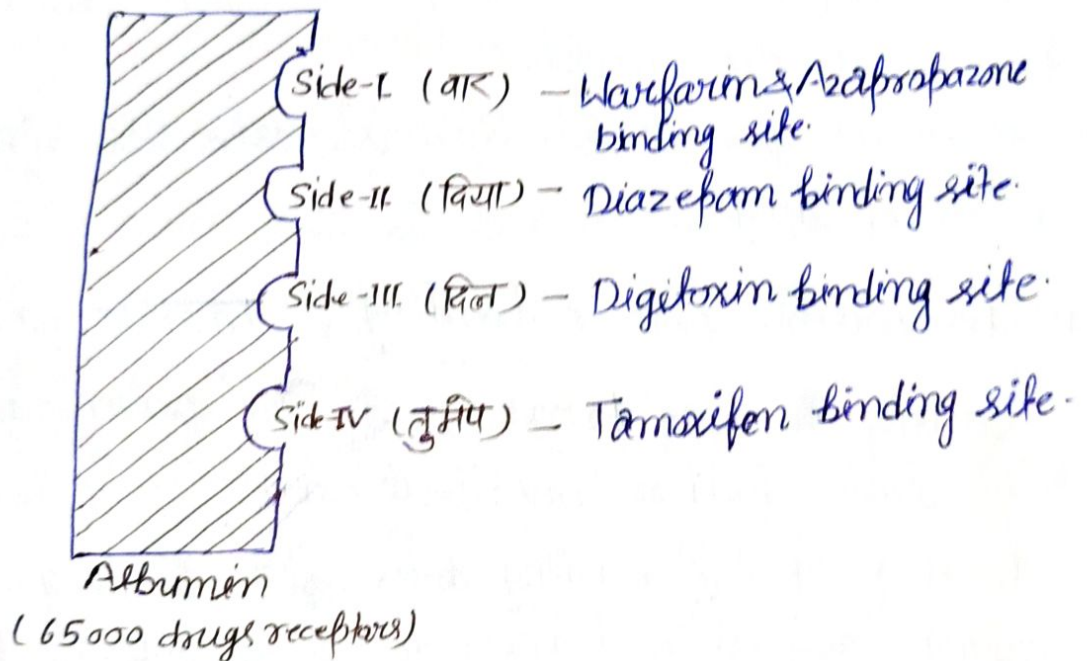 Side-I (वार) - Warfarin & Azapropazone
binding site.
Side-II (दिया) - Diazepam binding site.
Side-III (दिल) - Digitoxin binding site.
Side IV (तुमपे) - Tamoxifen binding site.
Albumin
(65000 drugs receptors)